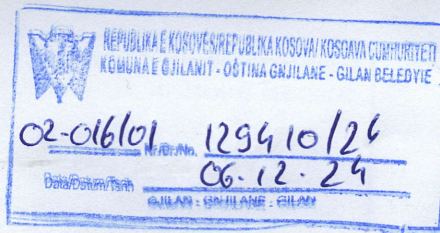 REPUBLIKA E KOSOVËS/REPUBLIKA KOSOVA/KOSOVA CUMHURIYETI
KOMUNA E GJILANIT - OŠTINA GNJILANE - GILAN BELEDYIE
02-016/01 Nr/Br/No. 129410/24
Data/Datum/Tarih 06.12.24
GJILAN : GNJILANE : GILAN